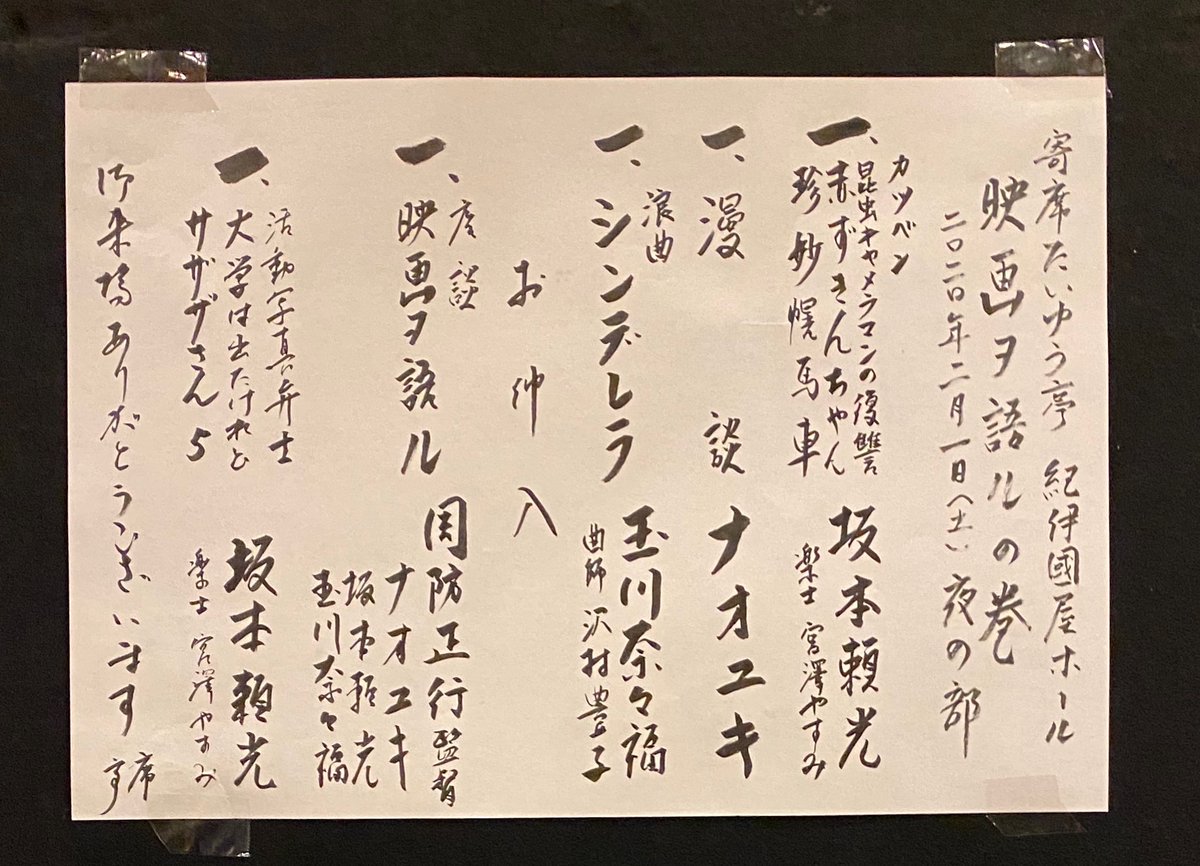 寄席たいゆう亭 紀伊國屋ホール
映画ヲ語ルの巻
二〇二〇年二月一日(土) 夜の部
カツベン
一、昆虫キャメラマンの復讐
赤ずきんちゃん
珍妙幌馬車
坂本頼光
楽士 宮澤やすみ
一、漫談 ナオユキ
一、浪曲
シンデレラ
玉川奈々福
曲師 沢村豊子
お仲入
一、座談
映画ヲ語ル
周防正行監督
ナオユキ
坂本頼光
玉川奈々福
一、活動写真弁士
大学は出たけれど
サザザさん 5
坂本頼光
楽士 宮澤やすみ
御来場ありがとうございます 席亭